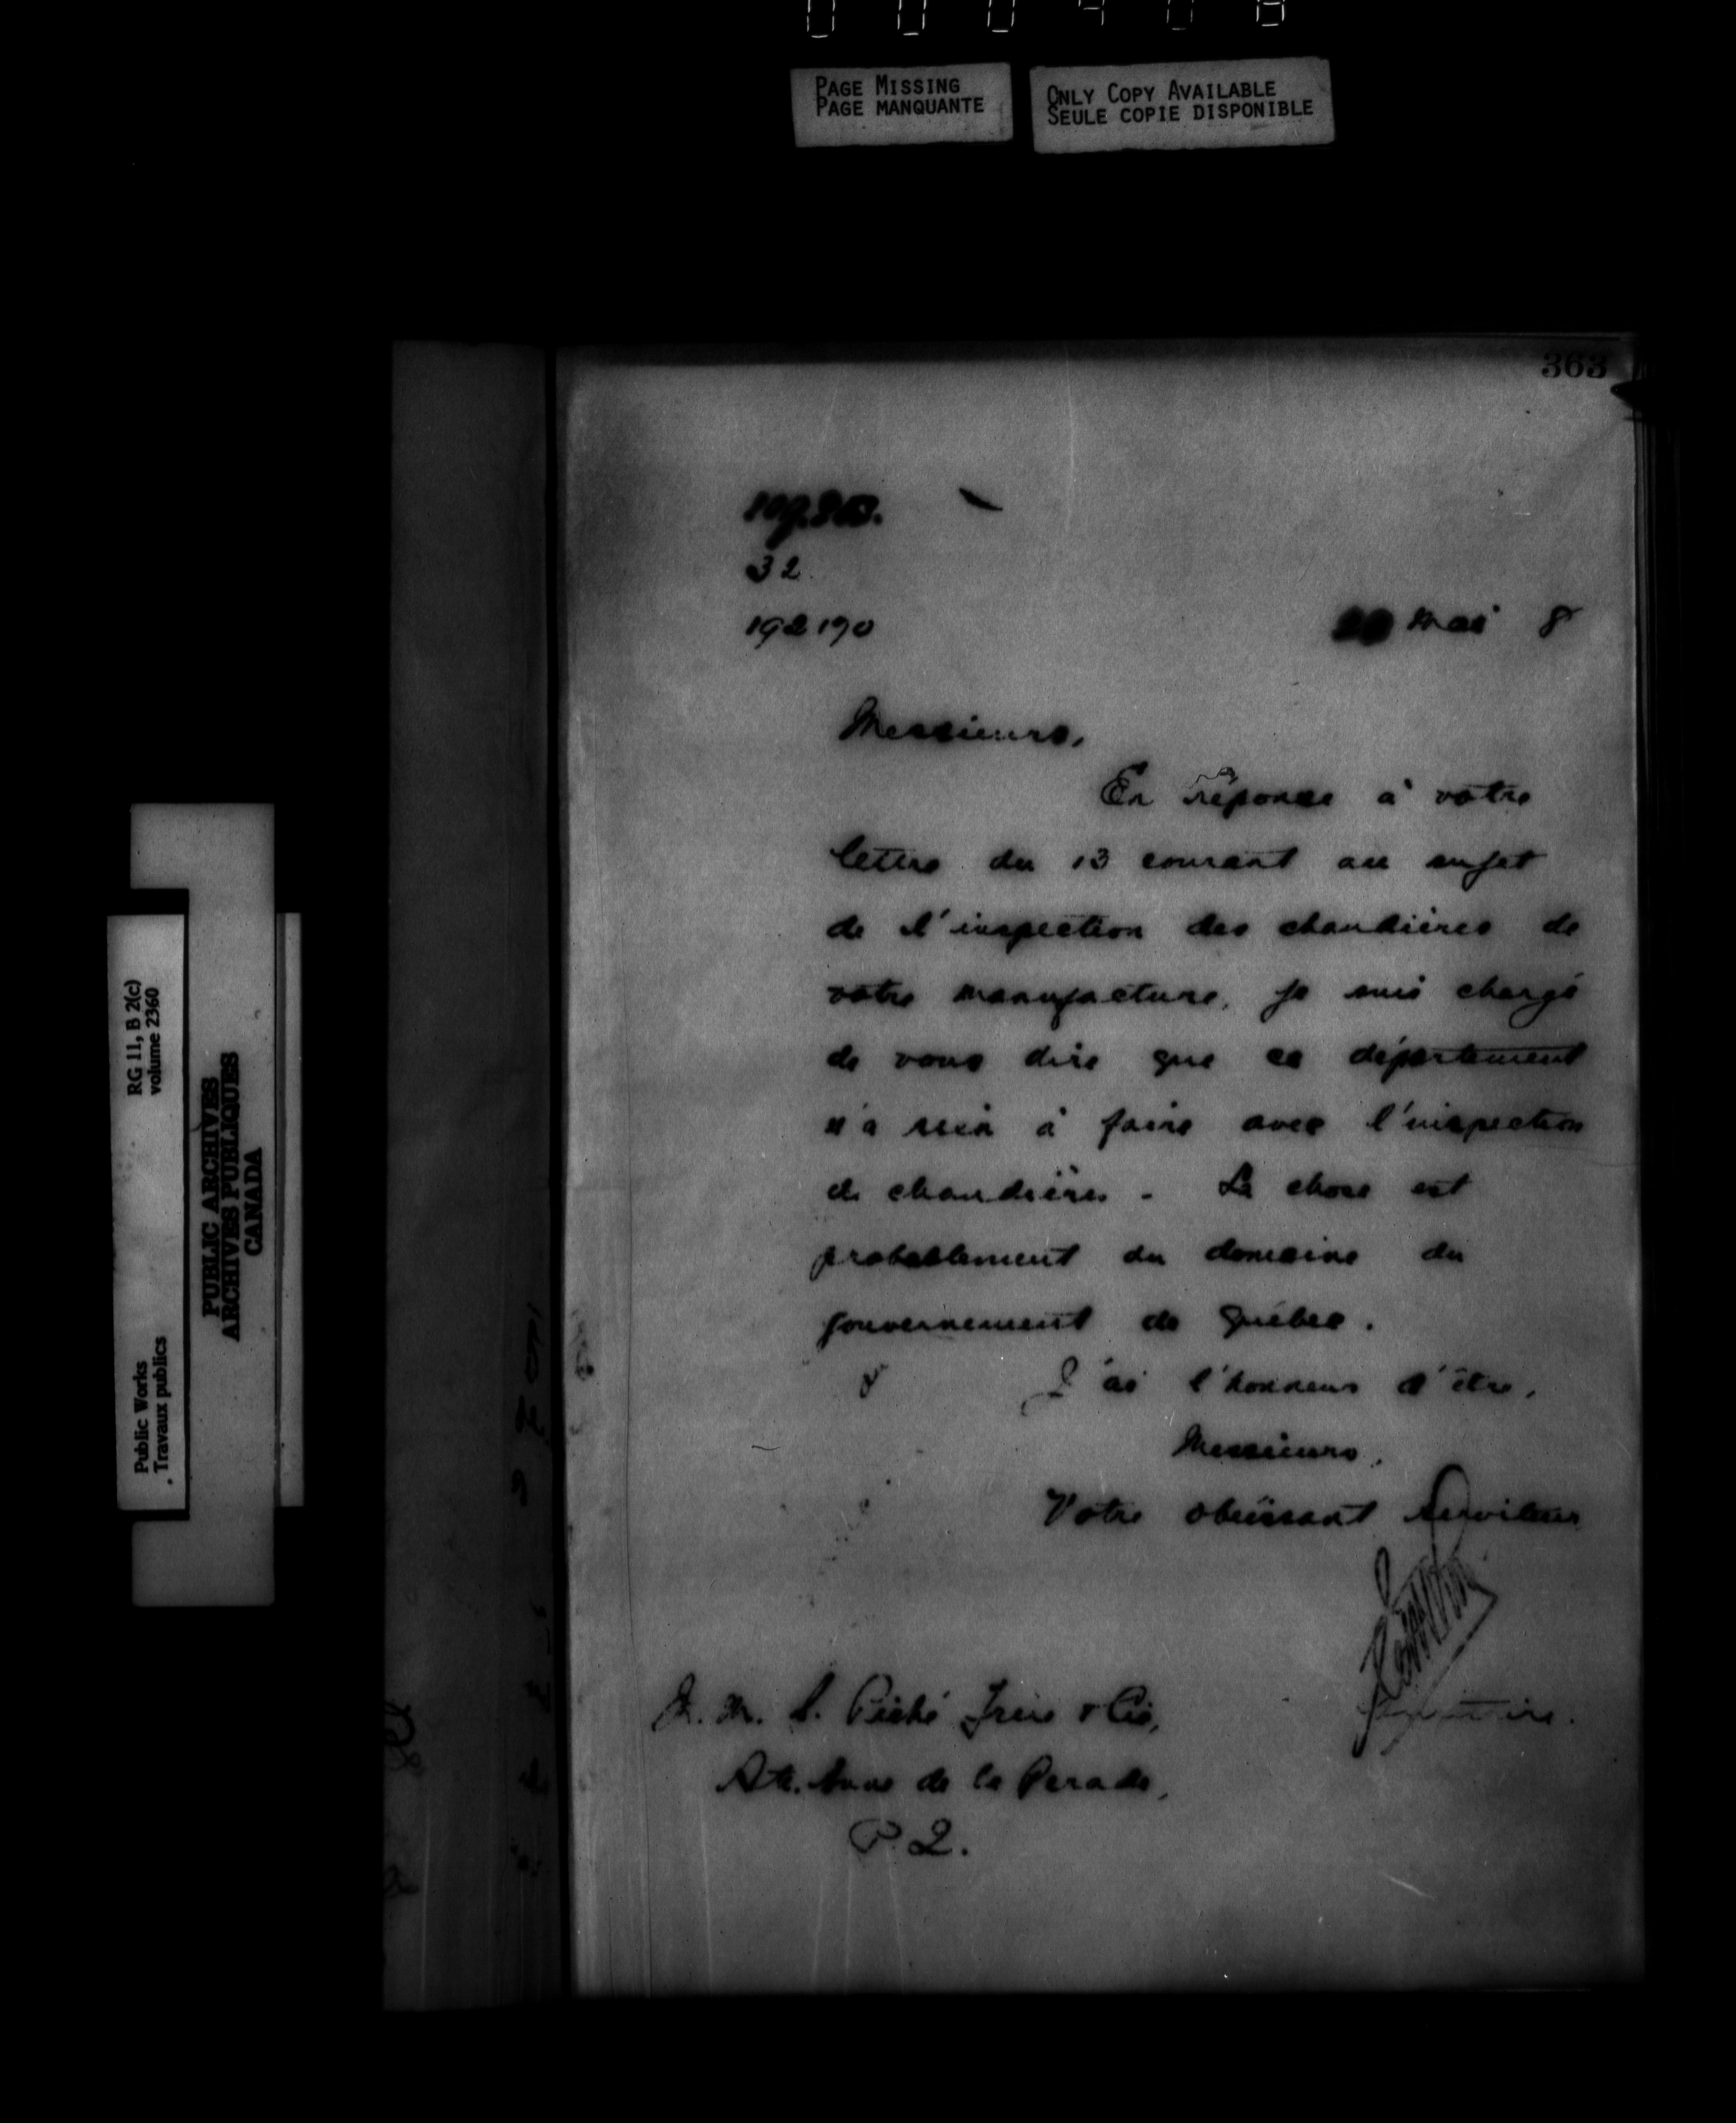 PAGE MISSING
PAGE MANQUANTE
ONLY COPY AVAILABLE
SEULE COPIE DISPONIBLE
363
32
192190
20 mai 8
Messieurs,
En réponse à votre
lettre du 13 courant au sujet
de l'inspection des chaudières de
votre manufacture, je suis chargé
de vous dire que ce département
n'a rien à faire avec l'inspection
de chaudières - La chose est
probablement du domaine du
gouvernement de Québec.
J'ai l'honneur d'être,
Messieurs,
Votre obéissant serviteur
Secrétaire.
M. M. Piché Frère & Cie,
Ste. Anne de la Perade,
P.Q.
RG 11, B 2(c)
volume 2360
Public Works
Travaux publics
PUBLIC ARCHIVES
ARCHIVES PUBLIQUES
CANADA